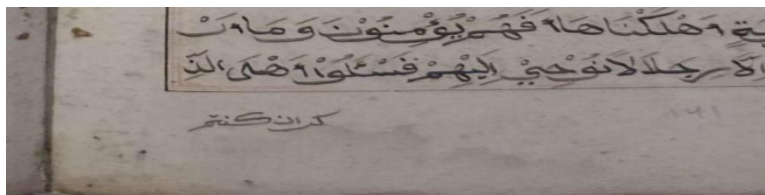 ية اَهْلَكْنَاهَا اَفَهُمْ يُؤْمِنُوْنَ وَمَا اَرْ
اِلَّا رِجَالًا نُوْحِيْ اِلَيْهِمْ فَسْـَٔلُوْا اَهْلَ الذ
كران كنتم